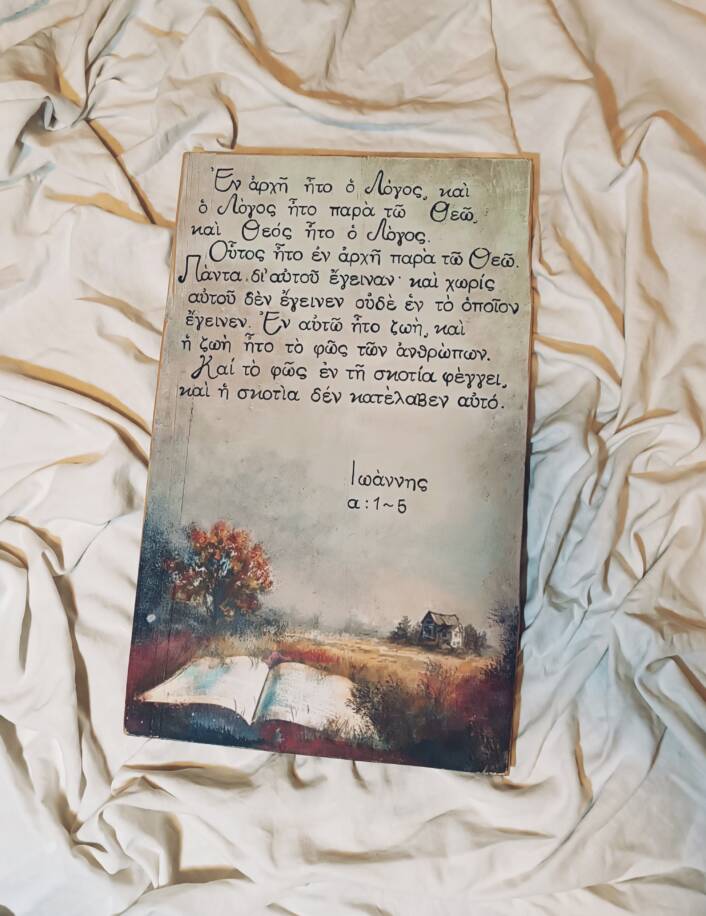 Ἐν ἀρχῆ ἦτο ὁ Λόγος, καὶ
ὁ Λόγος ἦτο παρὰ τῶ Θεῶ,
καὶ Θεός ἦτο ὁ Λόγος.
Οὗτος ἦτο ἐν ἀρχῆ παρὰ τῶ Θεῶ.
Πὰντα δι'αὐτοῦ ἔγειναν· καὶ χωρίς
αὐτοῦ δὲν ἔγεινεν οὐδὲ ἐν τὸ ὁποῖον
ἔγεινεν. Ἐν αὐτῶ ἦτο ζωὴ, καὶ
ἡ ζωὴ ἦτο τὸ φῶς τῶν ἀνθρώπων.
Καί τὸ φῶς ἐν τῆ σκοτία φὲγγει,
καὶ ἡ σκοτὶα δέν κατὲλαβεν αὐτό.
Ιωὰννης
α:1~5